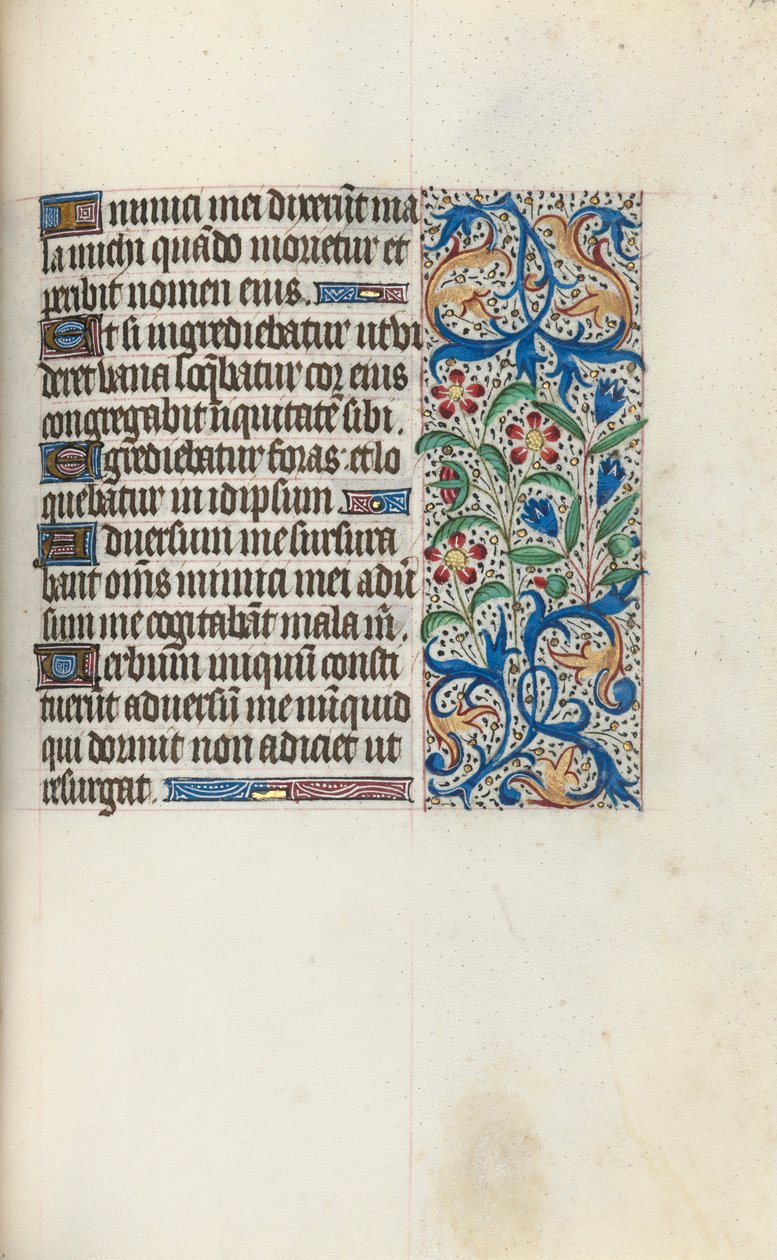 Inimici mei dixerūt ma
la michi quādo morietur et
peribit nomen eius.
Et si ingrediebatur ut vi
deret vana loq̄batur cor eius
congregabit īiquitatē sibi.
Egrediebatur foras. et lo
quebatur in idipsum
Adversum me susurra
bant om̄s inimici mei adū
sum me cogitabāt mala m̄.
Verbum iniquū consti
tuerūt adversū me nūquid
qui dormit non adiciet ut
resurgat.